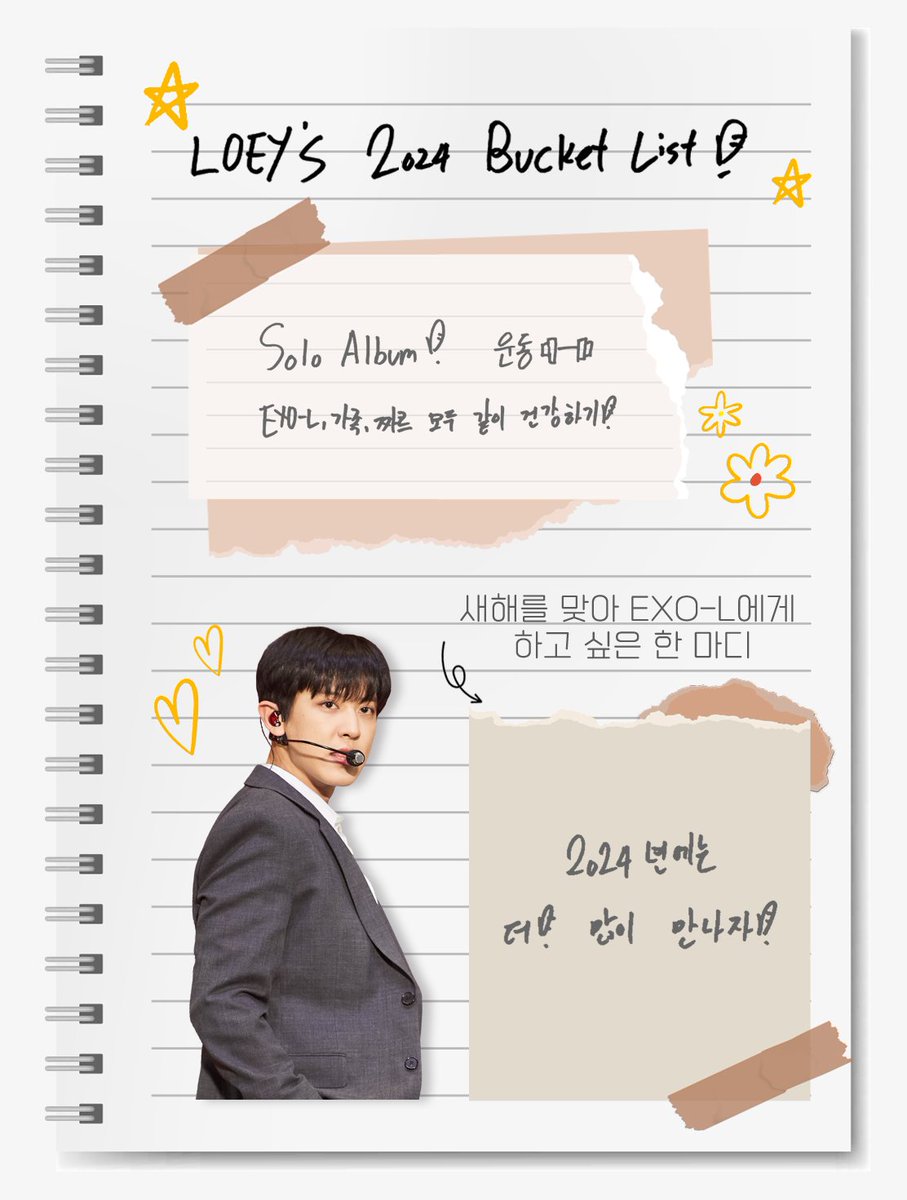 LOEY's 2024 Bucket List!
Solo Album! 운동
EXO-L, 가족, 짜르 모두 같이 건강하기!
새해를 맞아 EXO-L에게
하고 싶은 한 마디
2024년에는
더! 많이 만나자!